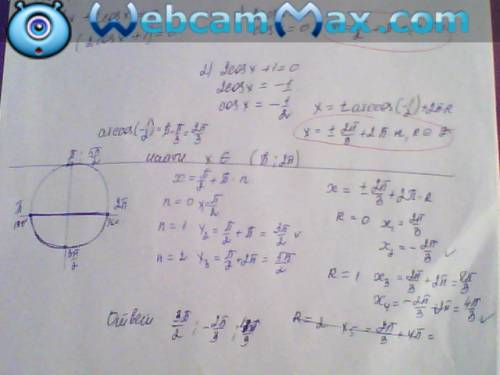 WebcamMax.com
2) 2cosx+1=0
2cosx = -1
cosx = -1/2
x = ± arccos(-1/2)+2πk
arccos(-1/2)=π-π/3=2π/3
x = ± 2π/3 + 2πn, n∈Z
найти x∈ (π; 2π)
x=π/2+π·n
n=0 x=π/2
n=1 x₂=π/2+π=3π/2 ✓
n=2 x₃=π/2+2π=5π/2
x = ± 2π/3 + 2π·k
k=0 x₁=2π/3
x₂=-2π/3 ✓
k=1 x₃=2π/3+2π=8π/3
x₄=-2π/3+2π=4π/3 ✓
k=2 x₅=2π/3+4π=
π/2; 5π/2
π
180°
2π
3π/2
Ответ 3π/2; -2π/3; 4π/3